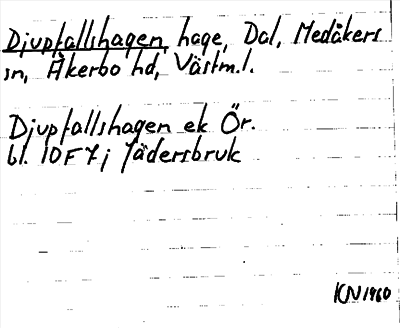 Djupfallshagen, hage, Dal, Medåkers
sn, Åkerbo hd, Västm.l.
Djupfallshagen ek Ör.
bl. 10F7j Jädersbruk
KN1960